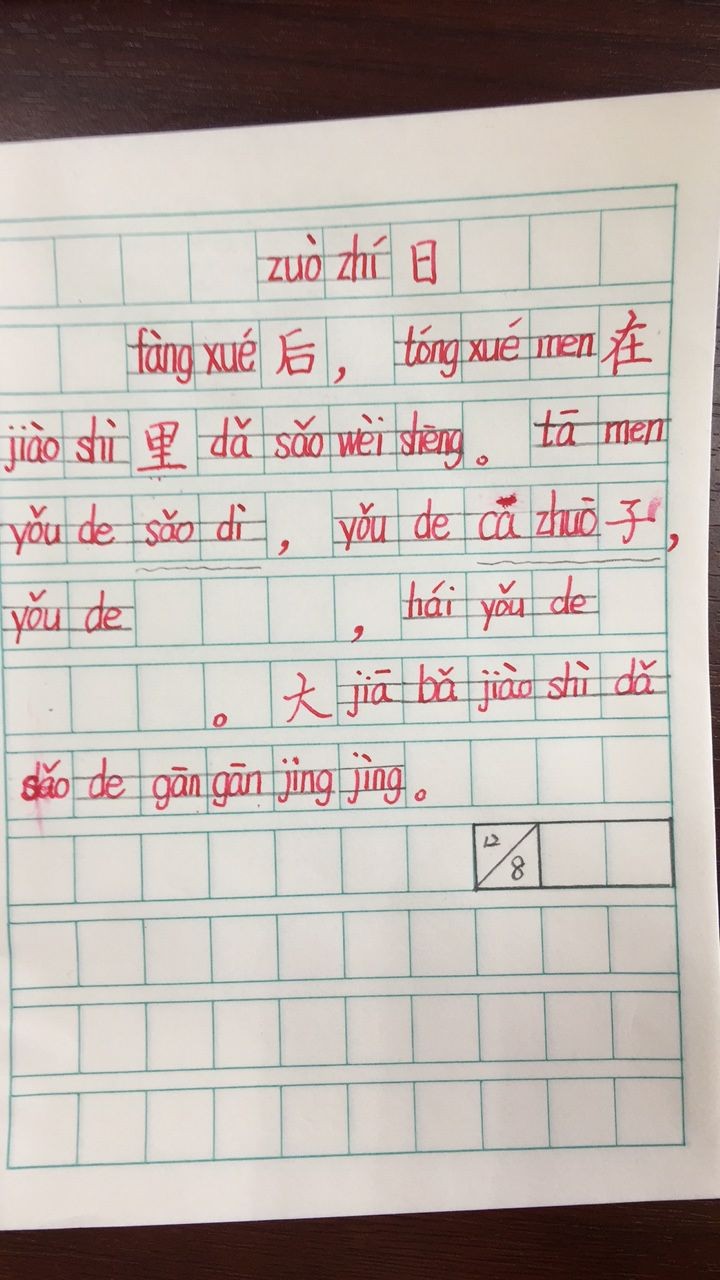 zuò zhí 日
fàng xué 后， tóng xué men 在
jiào shì 里 dǎ sǎo wèi shēng。 tā men
yǒu de sǎo dì， yǒu de cā zhuō 子，
yǒu de ， hái yǒu de
。 大 jiā bǎ jiào shì dǎ
sǎo de gān gān jìng jìng。
12/8